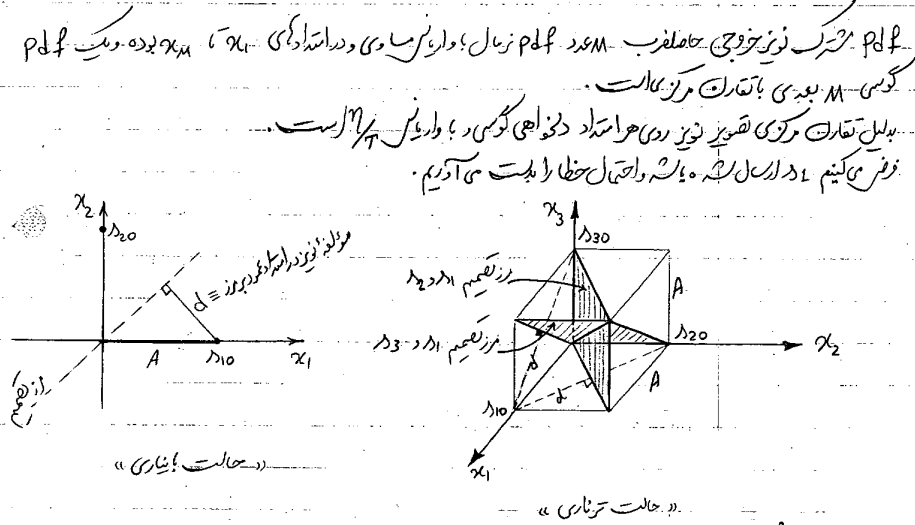 pdf مشترک نویز خروجی حاصلضرب M عدد pdf نرمال با واریانس مساوی و در امتدادهای x₁ تا x_M بوده و یک pdf
گوسی M بعدی با تقارن مرکزی است.
بدلیل تقارن مرکزی تصویر نویز روی هر امتداد دلخواهی گوسی و با واریانس η/T است.
فرض می‌کنیم s₁ ارسال شده باشد و احتمال خطا را بدست می‌آوریم.
x₂
s₂₀
d ≡ مؤلفهٔ نویز در امتداد عمود بر مرز
A
s₁₀
x₁
مرز تصمیم
«حالت باینری»
x₃
s₃₀
مرز تصمیم s₁ و s₂
A
s₂₀
x₂
مرز تصمیم s₁ و s₃
d
d
A
s₁₀
x₁
«حالت ترناری»